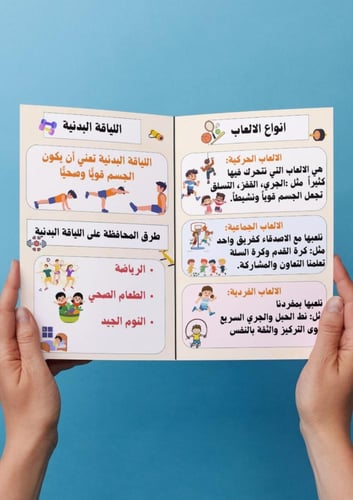 انواع الالعاب
الالعاب الحركية:
هي الالعاب التي نتحرك فيها
كثيراً مثل :الجري، القفز، التسلق
تجعل الجسم قوياً ونشيطاً.
الالعاب الجماعية:
نلعبها مع الاصدقاء كفريق واحد
مثل: كرة القدم وكرة السلة
تعلمنا التعاون والمشاركة.
الالعاب الفردية:
نلعبها بمفردنا
مثل: نط الحبل والجري السريع
التركيز والثقة بالنفس
اللياقة البدنية
اللياقة البدنية تعني أن يكون
الجسم قويًا وصحيًا
طرق المحافظة على اللياقة البدنية
• الرياضة
• الطعام الصحي
• النوم الجيد